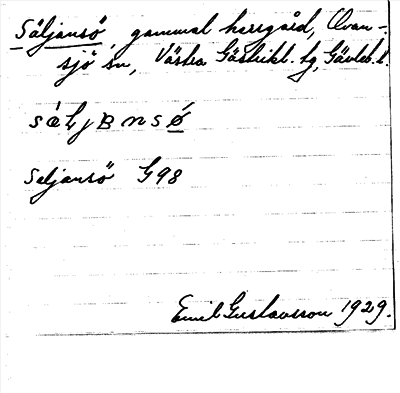 Säljansö, gammal herrgård, Ovan-
sjö sn, Västra Gästrikl. tg, Gävleb. l.
Seljansö G98
Emil Gustavsson 1929.